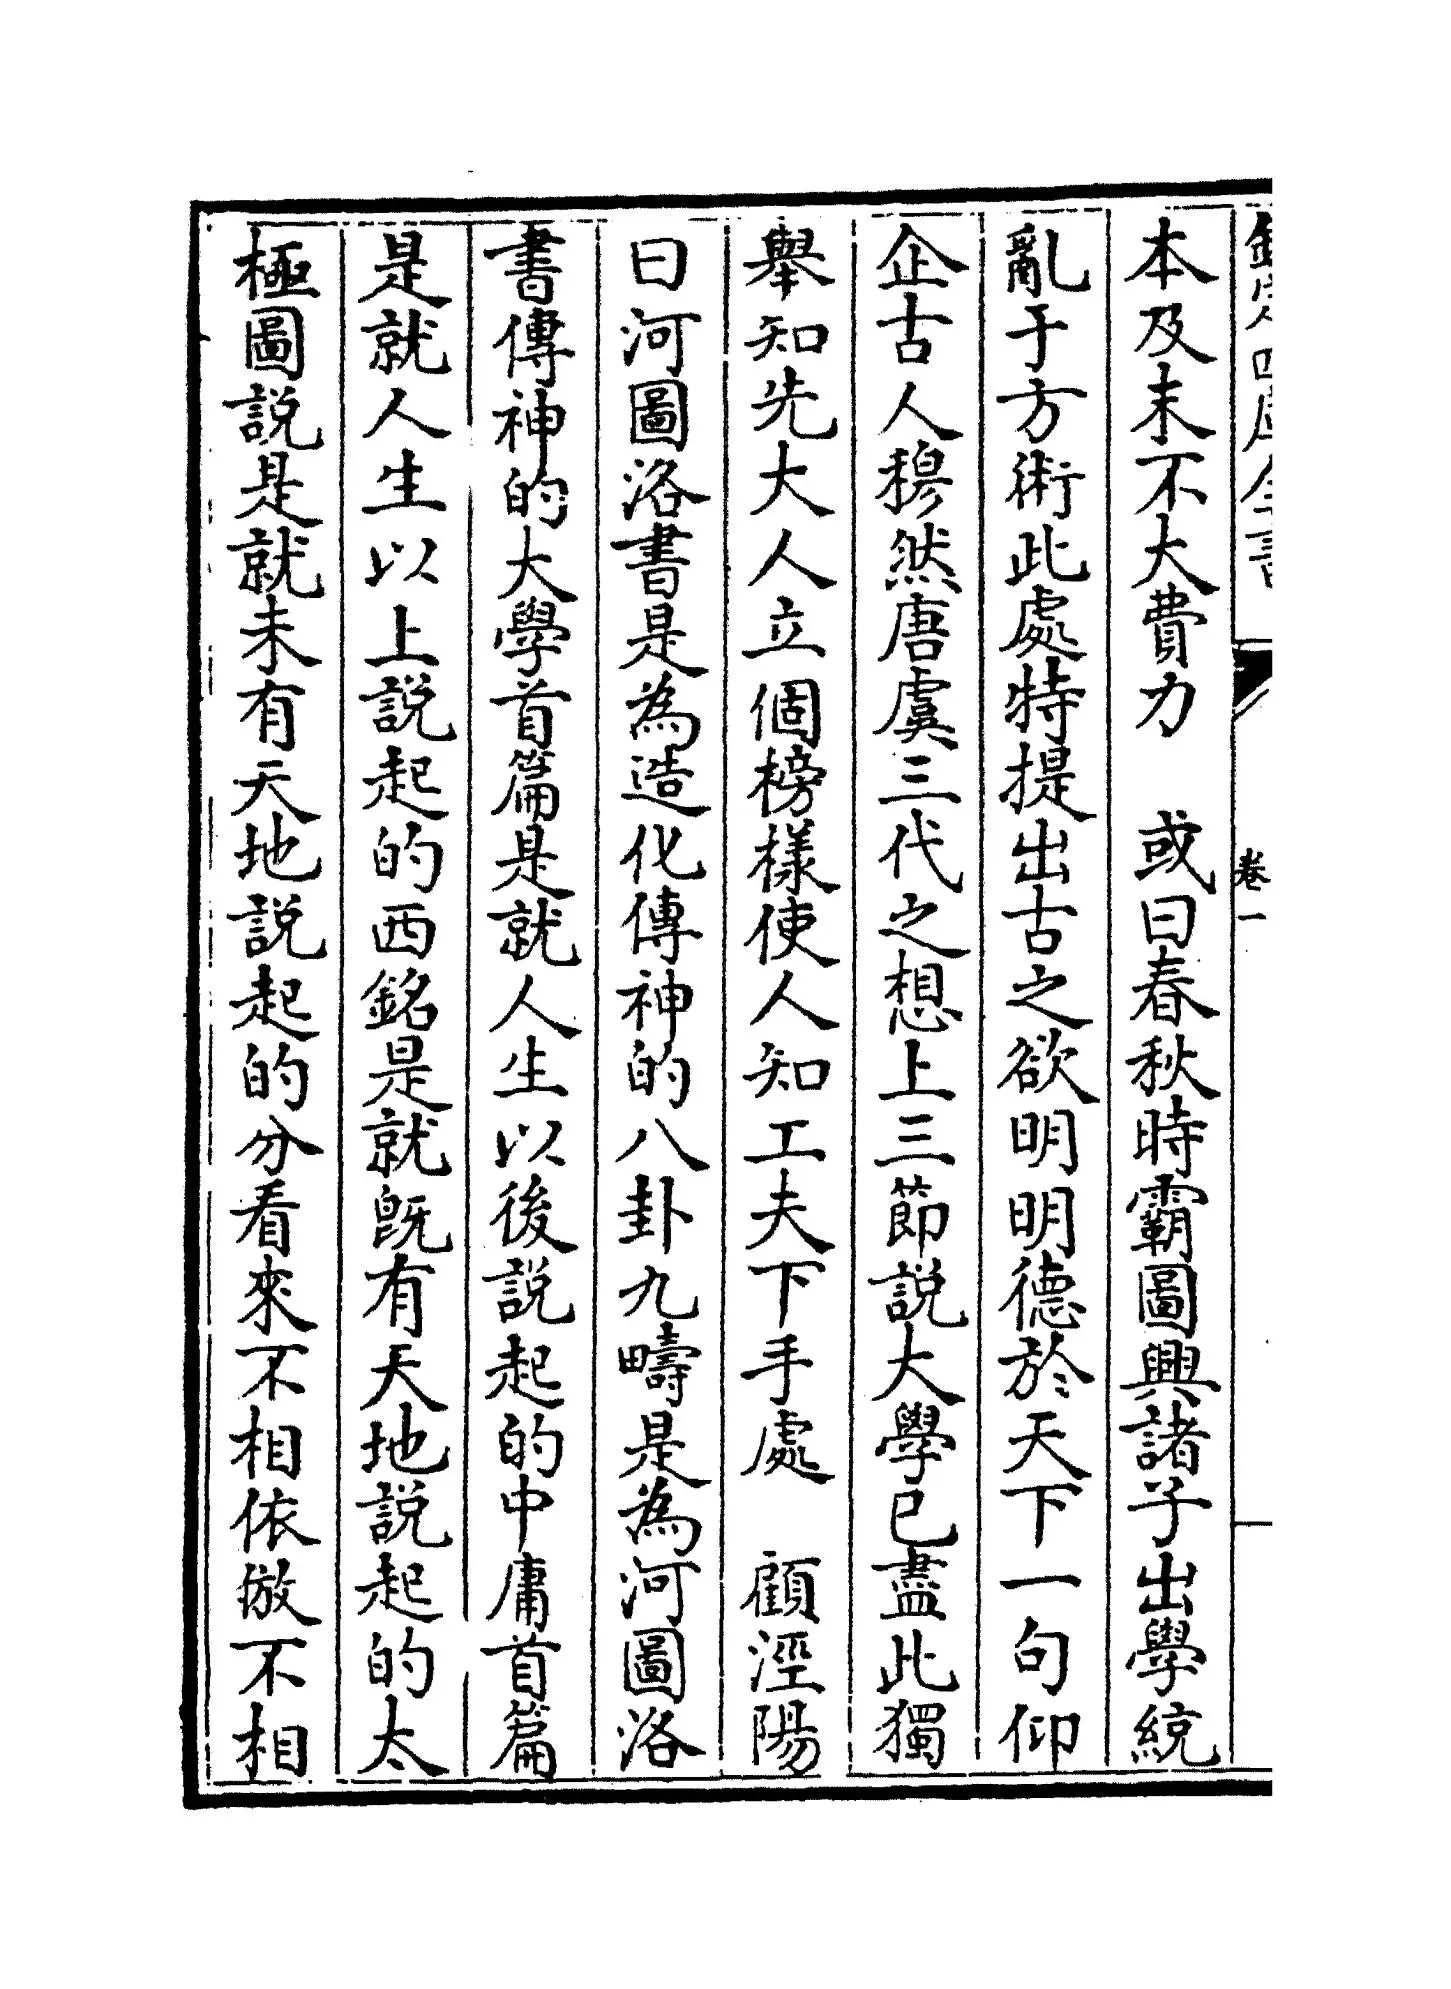 欽定四庫全書
卷一
本及末不大費力　或曰春秋時霸圖興諸子出學統
亂于方術此處特提出古之欲明明德於天下一句仰
企古人穆然唐虞三代之想上三節說大學已盡此獨
舉知先大人立個榜樣使人知工夫下手處　顧涇陽
曰河圖洛書是為造化傳神的八卦九疇是為河圖洛
書傳神的大學首篇是就人生以後說起的中庸首篇
是就人生以上說起的西銘是就既有天地說起的太
極圖說是就未有天地說起的分看來不相依倣不相